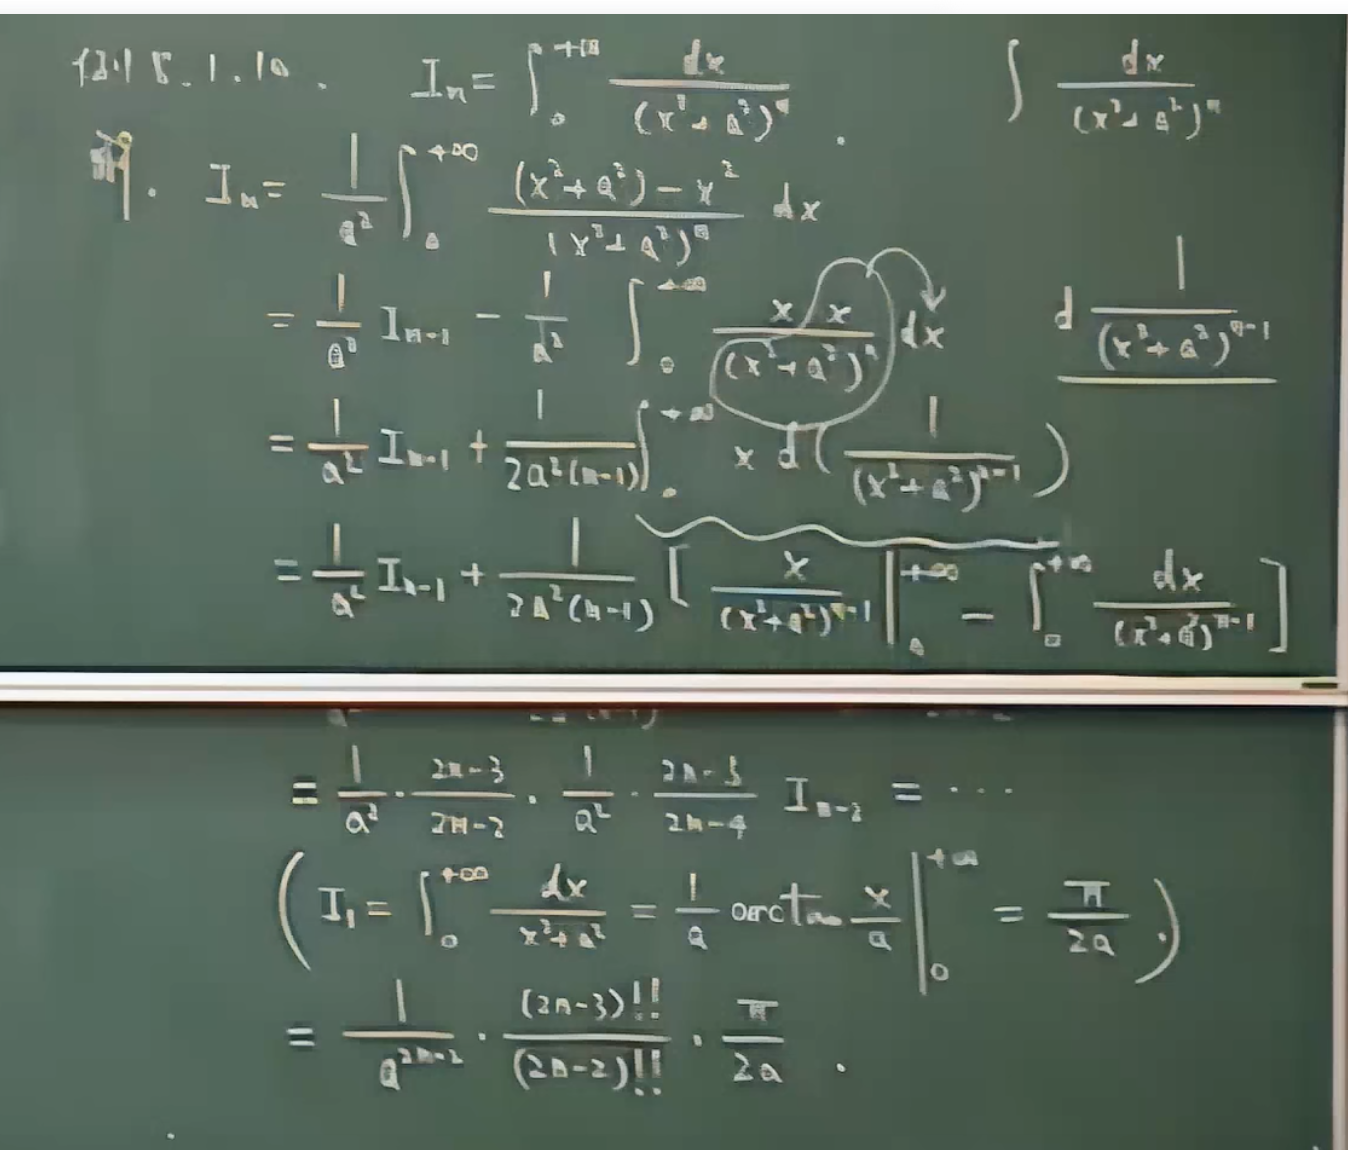 例 8.1.10. I_n = ∫_0^{+∞} dx/(x²+a²)^n . ∫ dx/(x²+a²)^n
解. I_n = 1/a² ∫_0^{+∞} ((x²+a²)-x²)/(x²+a²)^n dx
= 1/a² I_{n-1} - 1/a² ∫_0^{+∞} x x/(x²+a²)^n dx d 1/(x²+a²)^{n-1}
= 1/a² I_{n-1} + 1/(2a²(n-1)) ∫_0^{+∞} x d(1/(x²+a²)^{n-1})
= 1/a² I_{n-1} + 1/(2a²(n-1)) [ x/(x²+a²)^{n-1} |_0^{+∞} - ∫_0^{+∞} dx/(x²+a²)^{n-1} ]
= 1/a² · (2n-3)/(2n-2) · 1/a² · (2n-5)/(2n-4) I_{n-2} = ···
( I_1 = ∫_0^{+∞} dx/(x²+a²) = 1/a arctan x/a |_0^{+∞} = π/2a . )
= 1/a^{2n-2} · (2n-3)!!/(2n-2)!! · π/2a .